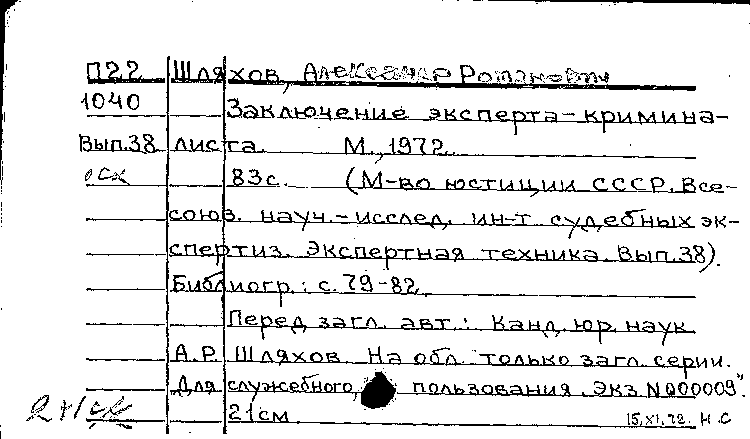 П22 Шляхов, Александр Романович
1040 Заключение эксперта-кримина-
Вып.38 листа. М., 1972.
83с. (М-во юстиции СССР. Все-
союз. науч.-исслед. ин-т судебных эк-
спертиз. Экспертная техника. Вып.38).
Библиогр.: с. 79-82.
Перед загл. авт.: Канд. юр. наук
А.Р. Шляхов. На обл. только загл. серии.
Для служебного пользования. Экз. N000009".
21см. 15.XI.72. Н.С